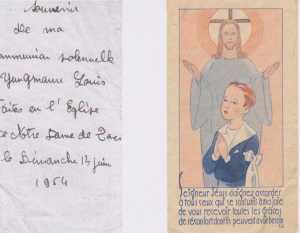 Souvenir
De ma
Communion solennelle
Louis
Faites en l'Eglise
Notre Dame de
le Dimanche 13 juin
1954
Seigneur Jésus daignez accorder
à tous ceux qui se sont unis à ma joie
de vous recevoir toutes les grâces
de réconfort dont ils peuvent avoir besoin